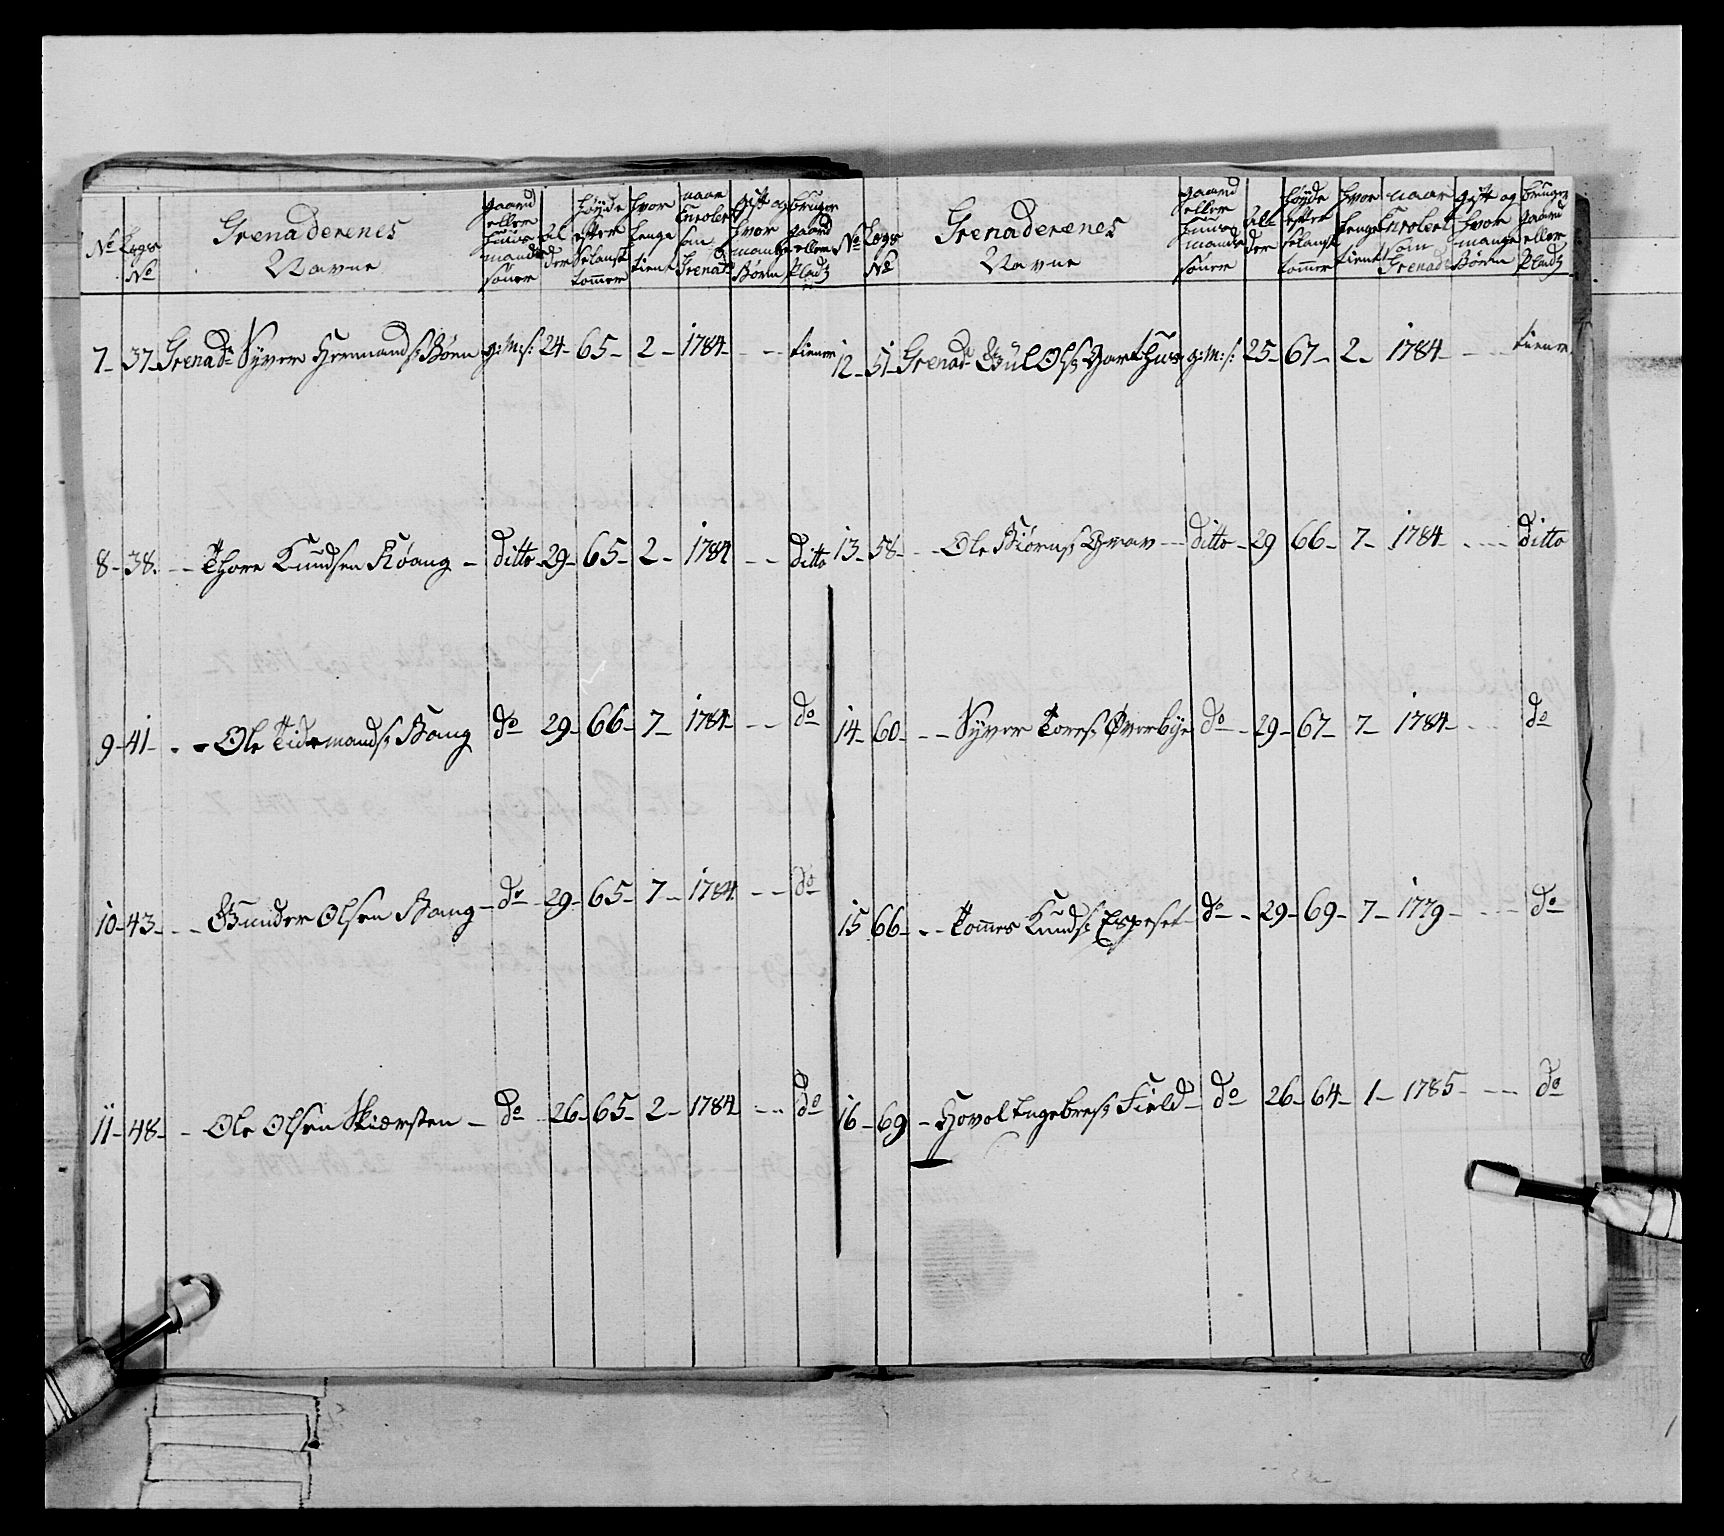 No Legs No Grenaderenes Navne gaard eller huus mands sönner Al der höyde efter Selansk tommer hvor lenge tient naar Enrolert som Grenad: Gift og hvor mange Börn bruger gaard eller Pladz
7 - 37 - Grenadr Syver Hermands: Börn g: M: s: 24 - 65 - 2 - 1784 - - - tiener
8 - 38 - - Thore Knudsen - ditto - 29 - 65 - 2 - 1784 - - ditto
9 - 41 - - Ole Tidemands: Bang do 29 - 66 - 7 - 1784 - - do
10 - 43 - - - Gunder Olsen Bang - do - 29 - 65 - 7 - 1784 - - do
11 - 48 - - Ole Olsen Skiersten - do 26 - 65 - 2 - 1784 - - do
No Legs No Grenaderenes Navne gaard eller huus mands sönner Al der höyde efter Selansk tommer hvor lenge tient naar Enrolert som Grenadr gift og hvor mange Börn bruger gaard eller Pladz
12 - 51 - Grenadr Ols: Garthus g: M: s: 25 - 67 - 2 - 1784 - - - tiener
13 - 58 - - - Ole Biörns: Grav - - ditto - 29 66 - 7 - 1784 - - - ditto
14 - 60 - - - Syver Tores: Øverbye do - 29 - 67 - 7 - 1784 - - - do
15 66 - - - Tommes Knuds: Espeset - do - 29 - 69 - 7 - 1779 - - - do
16 - 69 - Hovel Engebres: Field - do 26 - 64 - 1 - 1785 - - - do